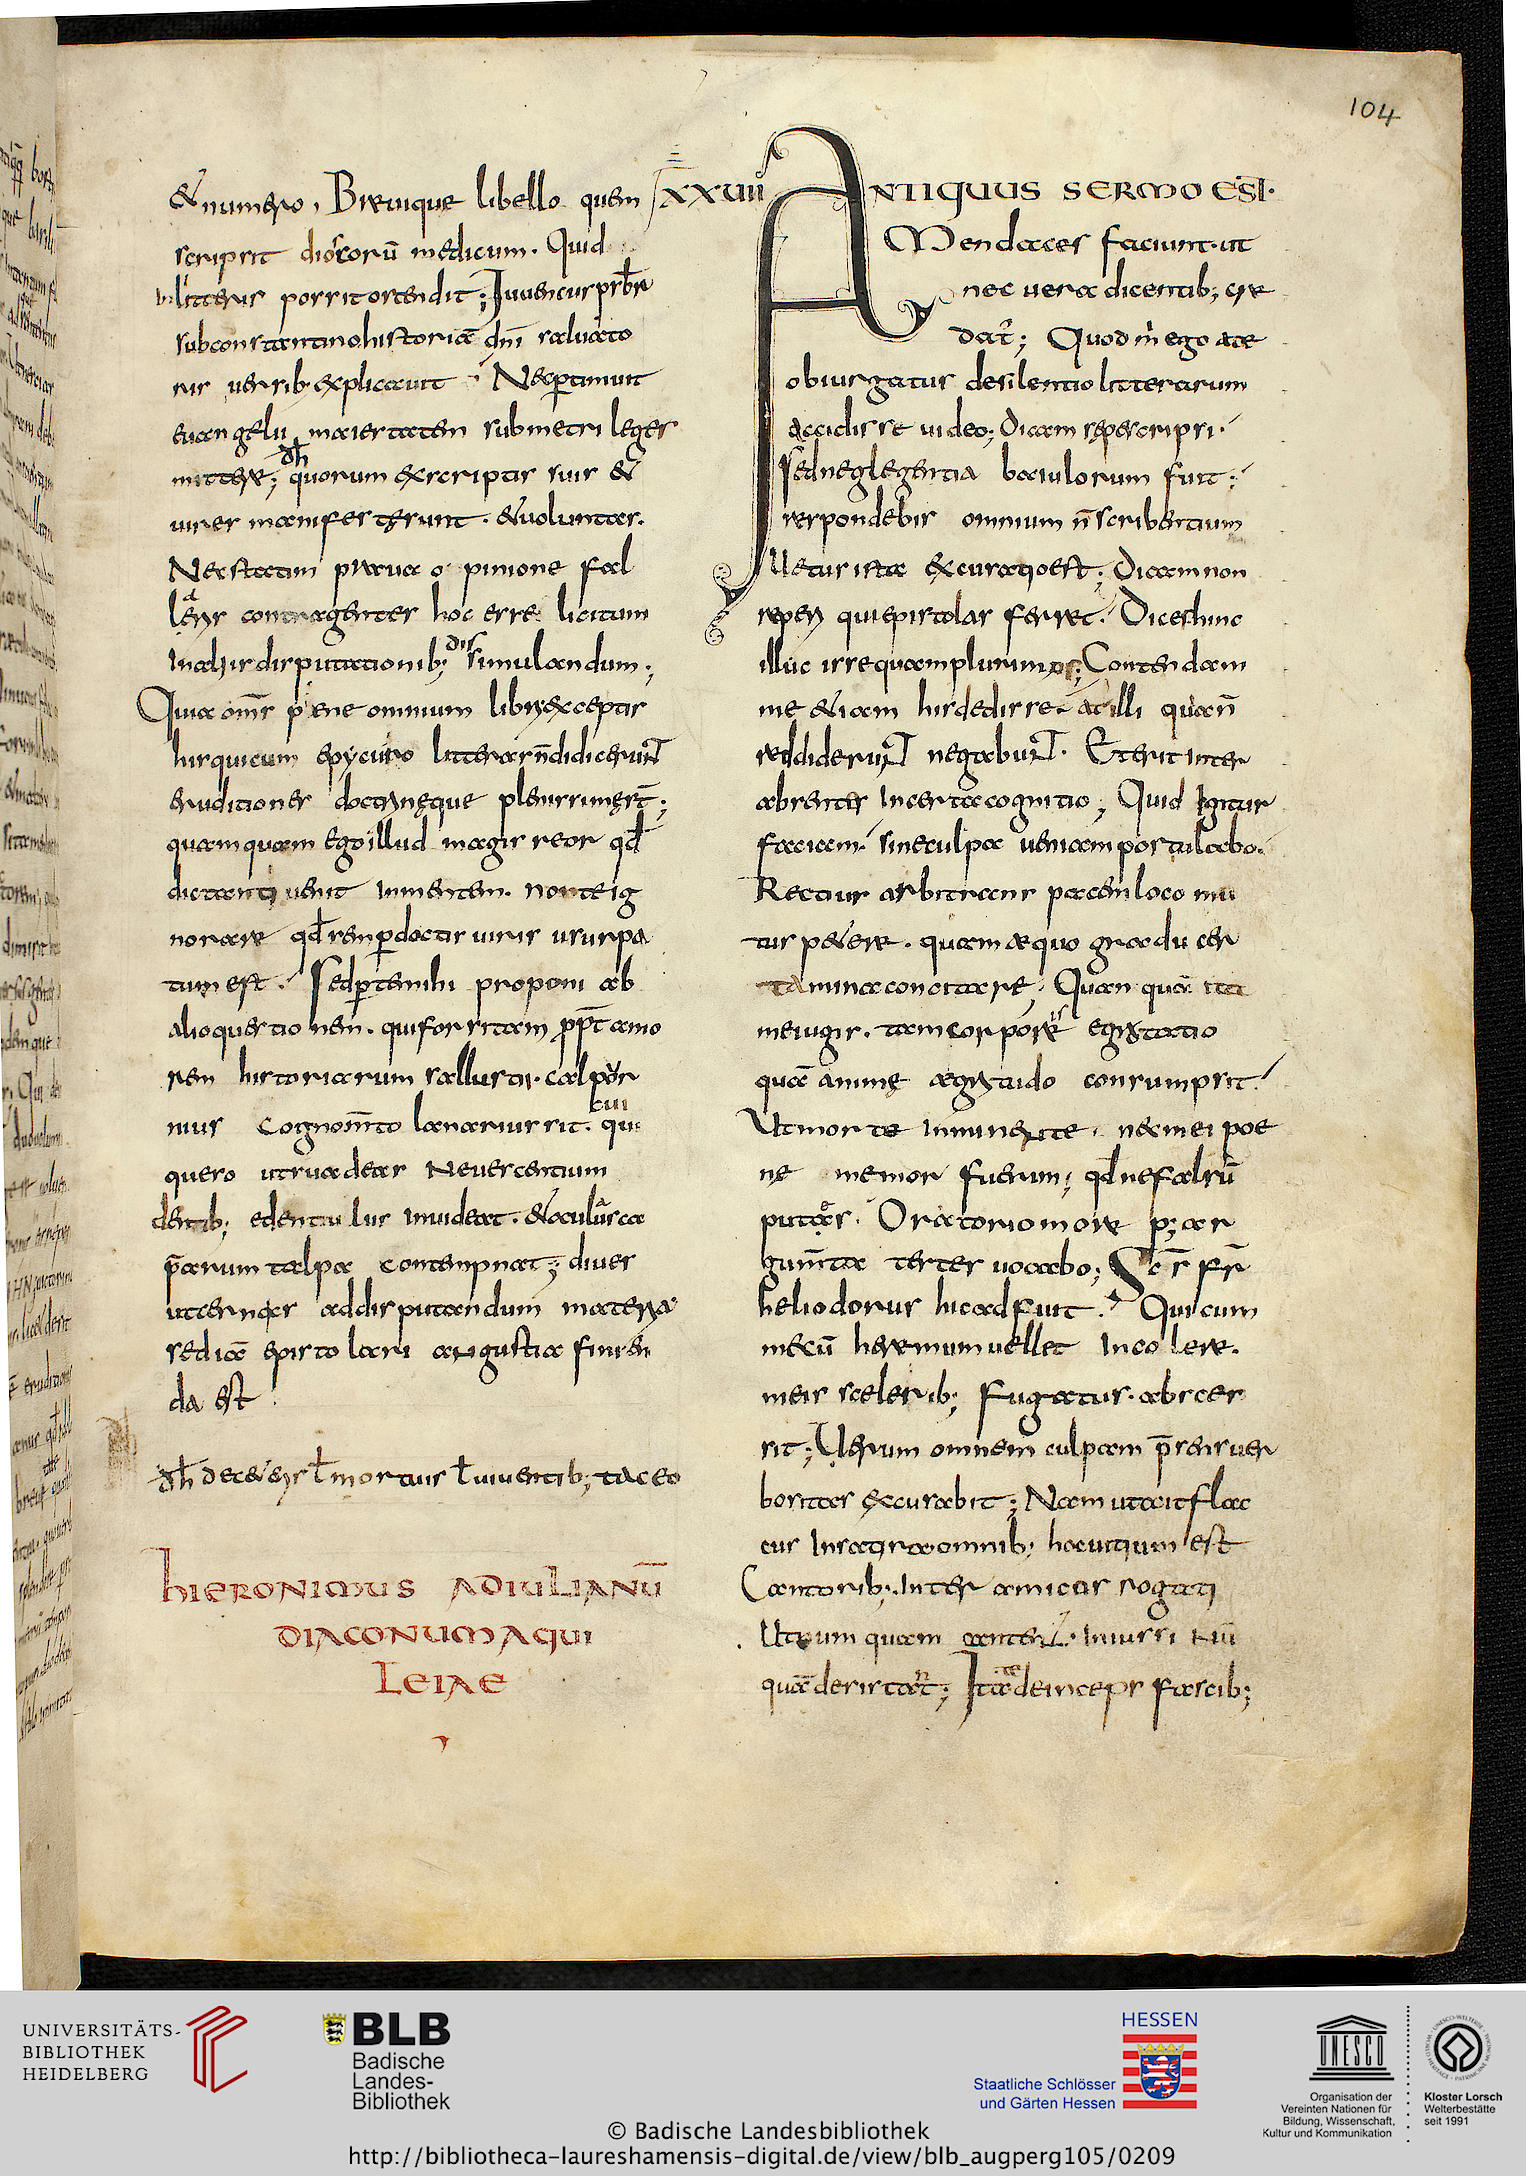 104
& numero. Breuique libello quem
scripsit discorū medicum. Quid
In litteris possit ostendit; Iuuencus prƀr
sub constantino historiā dn̄i saluato
ris uersib; explicauit. Nec ꝑtimuit
euangelii maiestatem sub metri leges
mittere; đh quorum excriptis suis &
uires manifesterunt. & uoluntas.
Nec statim praua opinione fal
leris contra gentes hoc esse licitum
In alsis disputationib; dissimulandum;
Quia om̄s pene omnium libri exceptis
his qui cum epycuro litteras n̄ didicerunt
eruditiones doctrinęque plenissimę st̄;
quamquam ego illud magis reor qđ
dictanti uenit in mentem. non te ig
norare qđ semꝑ doctis uiris usurpa
tum est. Sed ꝑ te mihi proponi ab
alio questionem. qui forsitam ꝓpt̄ amo
rem historiarum sallusti. calpor
nius cognom̄to lanarius sit. cui
quero ut suadeas ne uescentium
dentib; edentulus inuideat. & oculos ca
p̄arum talpa contempnat; diues
ut cernas ad disputandum materia
sed iā epistolari angustia finien
da est
đh deceueris ł mortuis ł uiuentib; taceo
hieronimus ad iulianū
diaconum aqui
leiae
XXVIII
Antiquus sermo est.
Mendaces faciunt. ut
nec uera dicentib; cre
dat̄; Quod m̄ ego a te
obiurgatus de silentio litterarum
accidisse uideo; Dicam sępe scripsi.
sed neglegentia baiulorum fuit;
respondebis omnium n̄ scribentium
Uetus ista excusatio est; Dicam non
reperi qui epistolas ferret. Dices hinc
illuc isse quam plurimos; Contendam
me & iam his dedisse. at illi quā n̄
reddiderunt negabunt. Et erit inter
absentes incerta cognitio; Quid igitur
faciam. sine culpa ueniam postulabo.
Rectius arbitrans pacem loco mu
tus petere. quam aequo gradu cer
tamina concitare; Quan quā ita
me iugis. tam corporis egrotatio
quā animę aegritudo conrumpsit.
Ut morte inminente. nec mei poe
nę memor fuerim; qđ ne falsū
putas. Oratorio more p; ar
gum̄ta testes uocabo; Sc̄s fr̄
heliodorus hic adfuit. Qui cum
mecū heremum uellet incolere.
meis sclerib; fugatus. absces
sit; Uerum omnem culpam p̄sens uer
bositas excusabit; Nam ut ait flac
cus In satira omnib; hoc uitium est
Cantorib;. Inter amicos rogati
Utnum quam cantent. Iniussi nū
quā desistant; Ita te deinceps fascib;
UNIVERSITÄTS-
BIBLIOTHEK
HEIDELBERG
BLB
Badische
Landes-
Bibliothek
HESSEN
Staatliche Schlösser
und Gärten Hessen
UNESCO
Organisation der
Vereinten Nationen für
Bildung, Wissenschaft,
Kultur und Kommunikation
Kloster Lorsch
Welterbestätte
seit 1991
© Badische Landesbibliothek
http://bibliotheca-laureshamensis-digital.de/view/blb_augperg105/0209